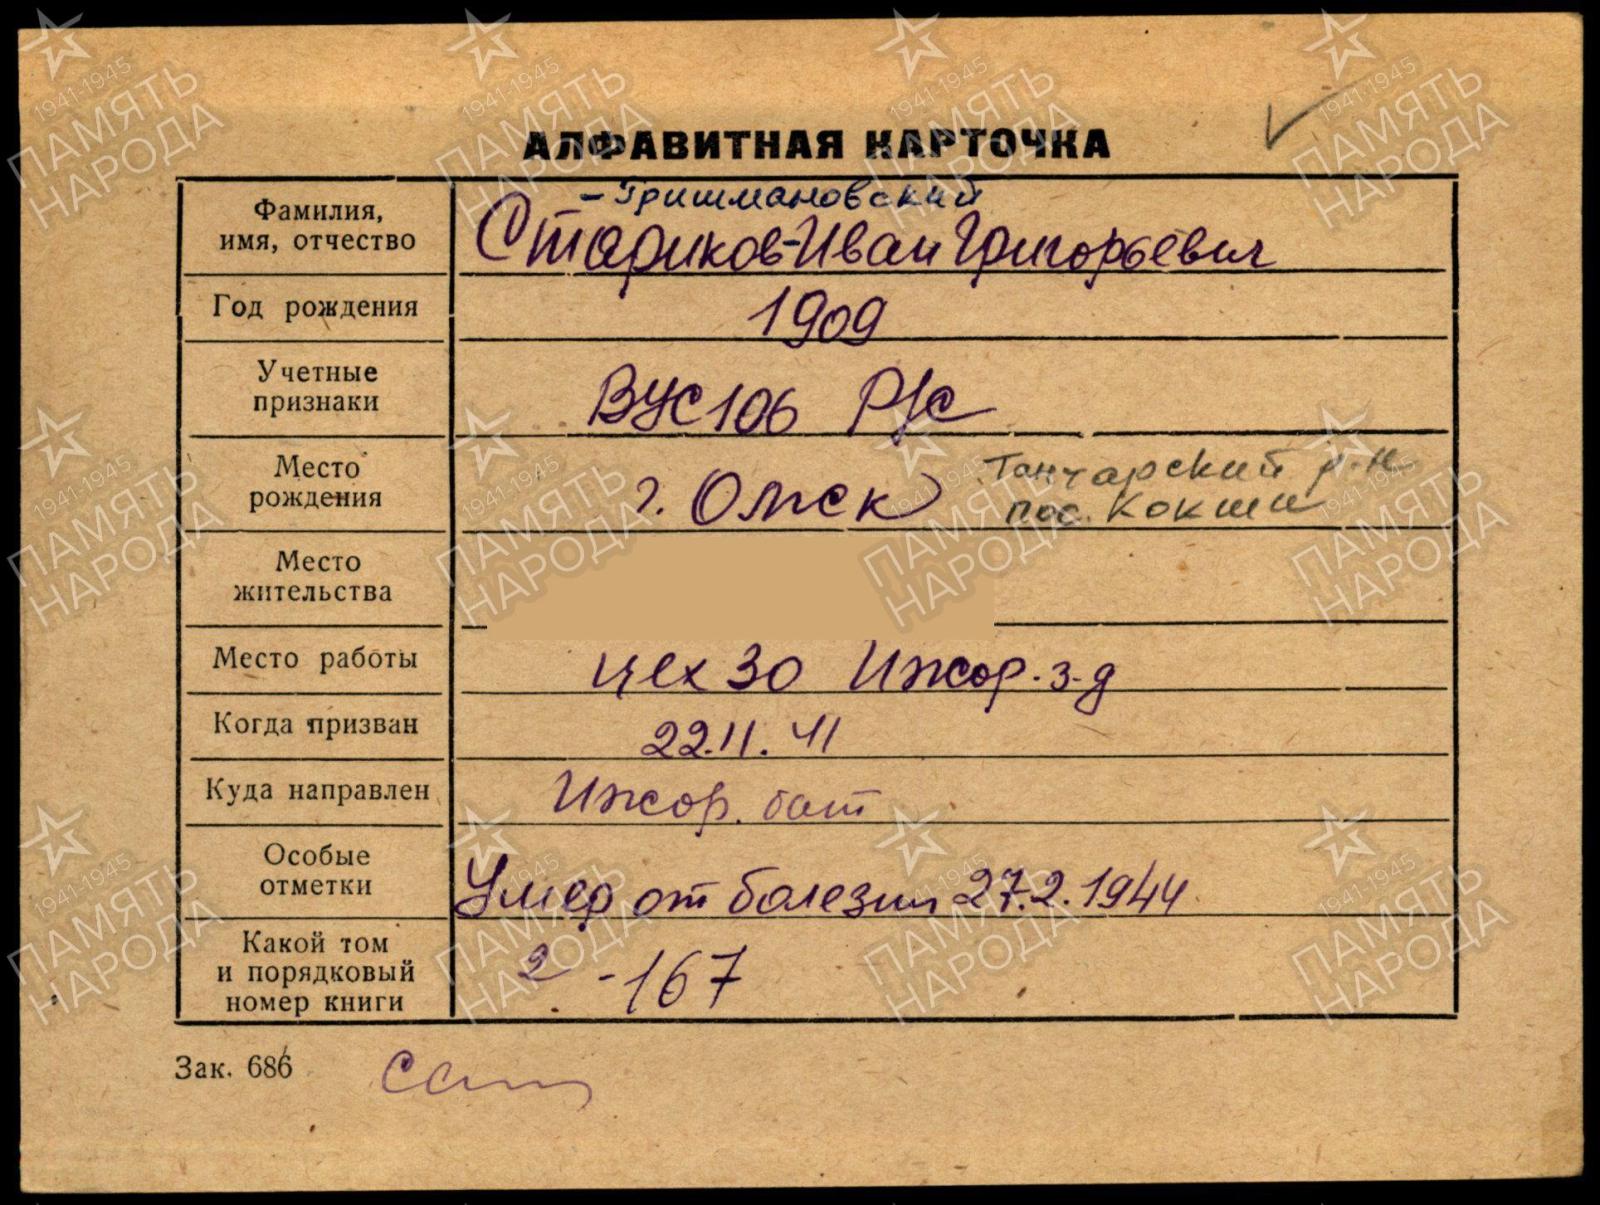 АЛФАВИТНАЯ КАРТОЧКА
Фамилия,
имя, отчество
-Гришмановский
Стариков-Иван Григорьевич
Год рождения
1909
Учетные
признаки
ВУС 106 Р/с
Место
рождения
г. Омск
Тончарский р-н
пос. Кокши
Место
жительства
Место работы
цех 30 Ижор. з-д
Когда призван
22.11.41
Куда направлен
Ижор. бат
Особые
отметки
Умер от болезни 27.2.1944
Какой том
и порядковый
номер книги
2 -167
Зак. 686
1941-1945
ПАМЯТЬ
НАРОДА